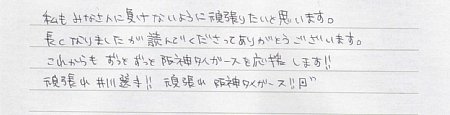 私もみなさんに負けないように頑張りたいと思います。
長くなりましたが読んでくださってありがとうございます。
これからもずっとずっと阪神タイガースを応援します!!
頑張れ井川選手!! 頑張れ阪神タイガース!!